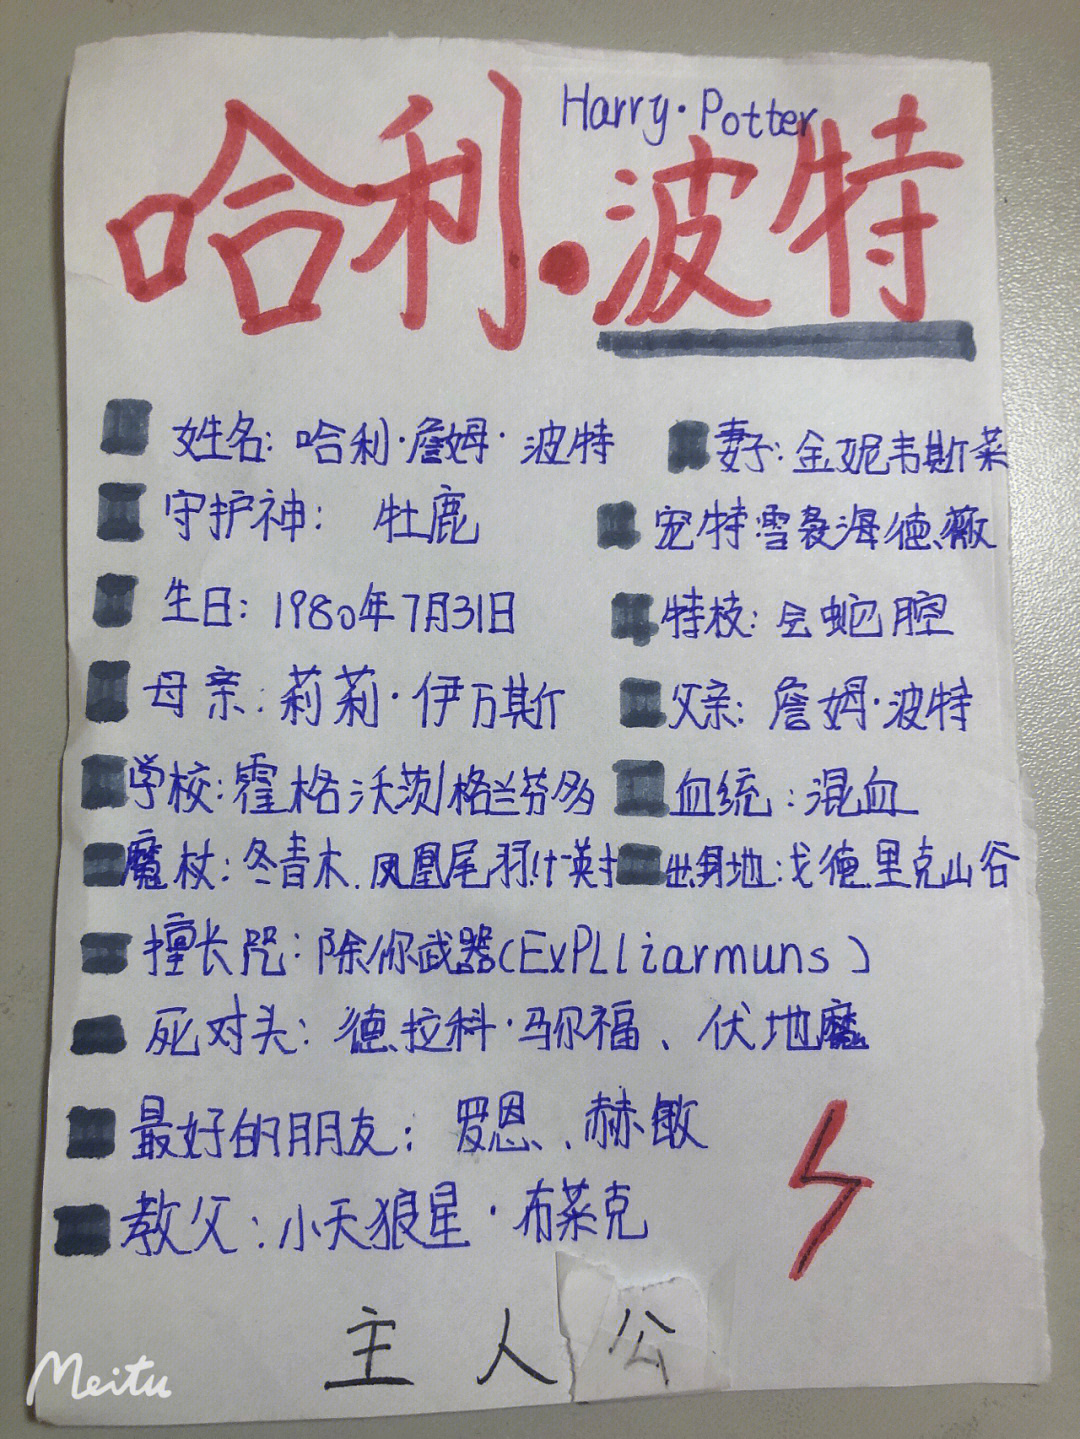 Harry·Potter
哈利·波特
姓名：哈利·詹姆·波特
妻子：金妮韦斯莱
守护神：牡鹿
宠物雪枭海德薇
生日：1980年7月31日
特技：会蛇腔
母亲：莉莉·伊万斯
父亲：詹姆·波特
学校：霍格沃茨格兰芬多
血统：混血
魔杖：冬青木、凤凰尾羽11英寸
出身地：戈德里克山谷
擅长咒：除你武器(ExPLliarmuns)
死对头：德拉科·马尔福、伏地魔
最好的朋友：罗恩、赫敏
教父：小天狼星·布莱克
主人公
Meitu